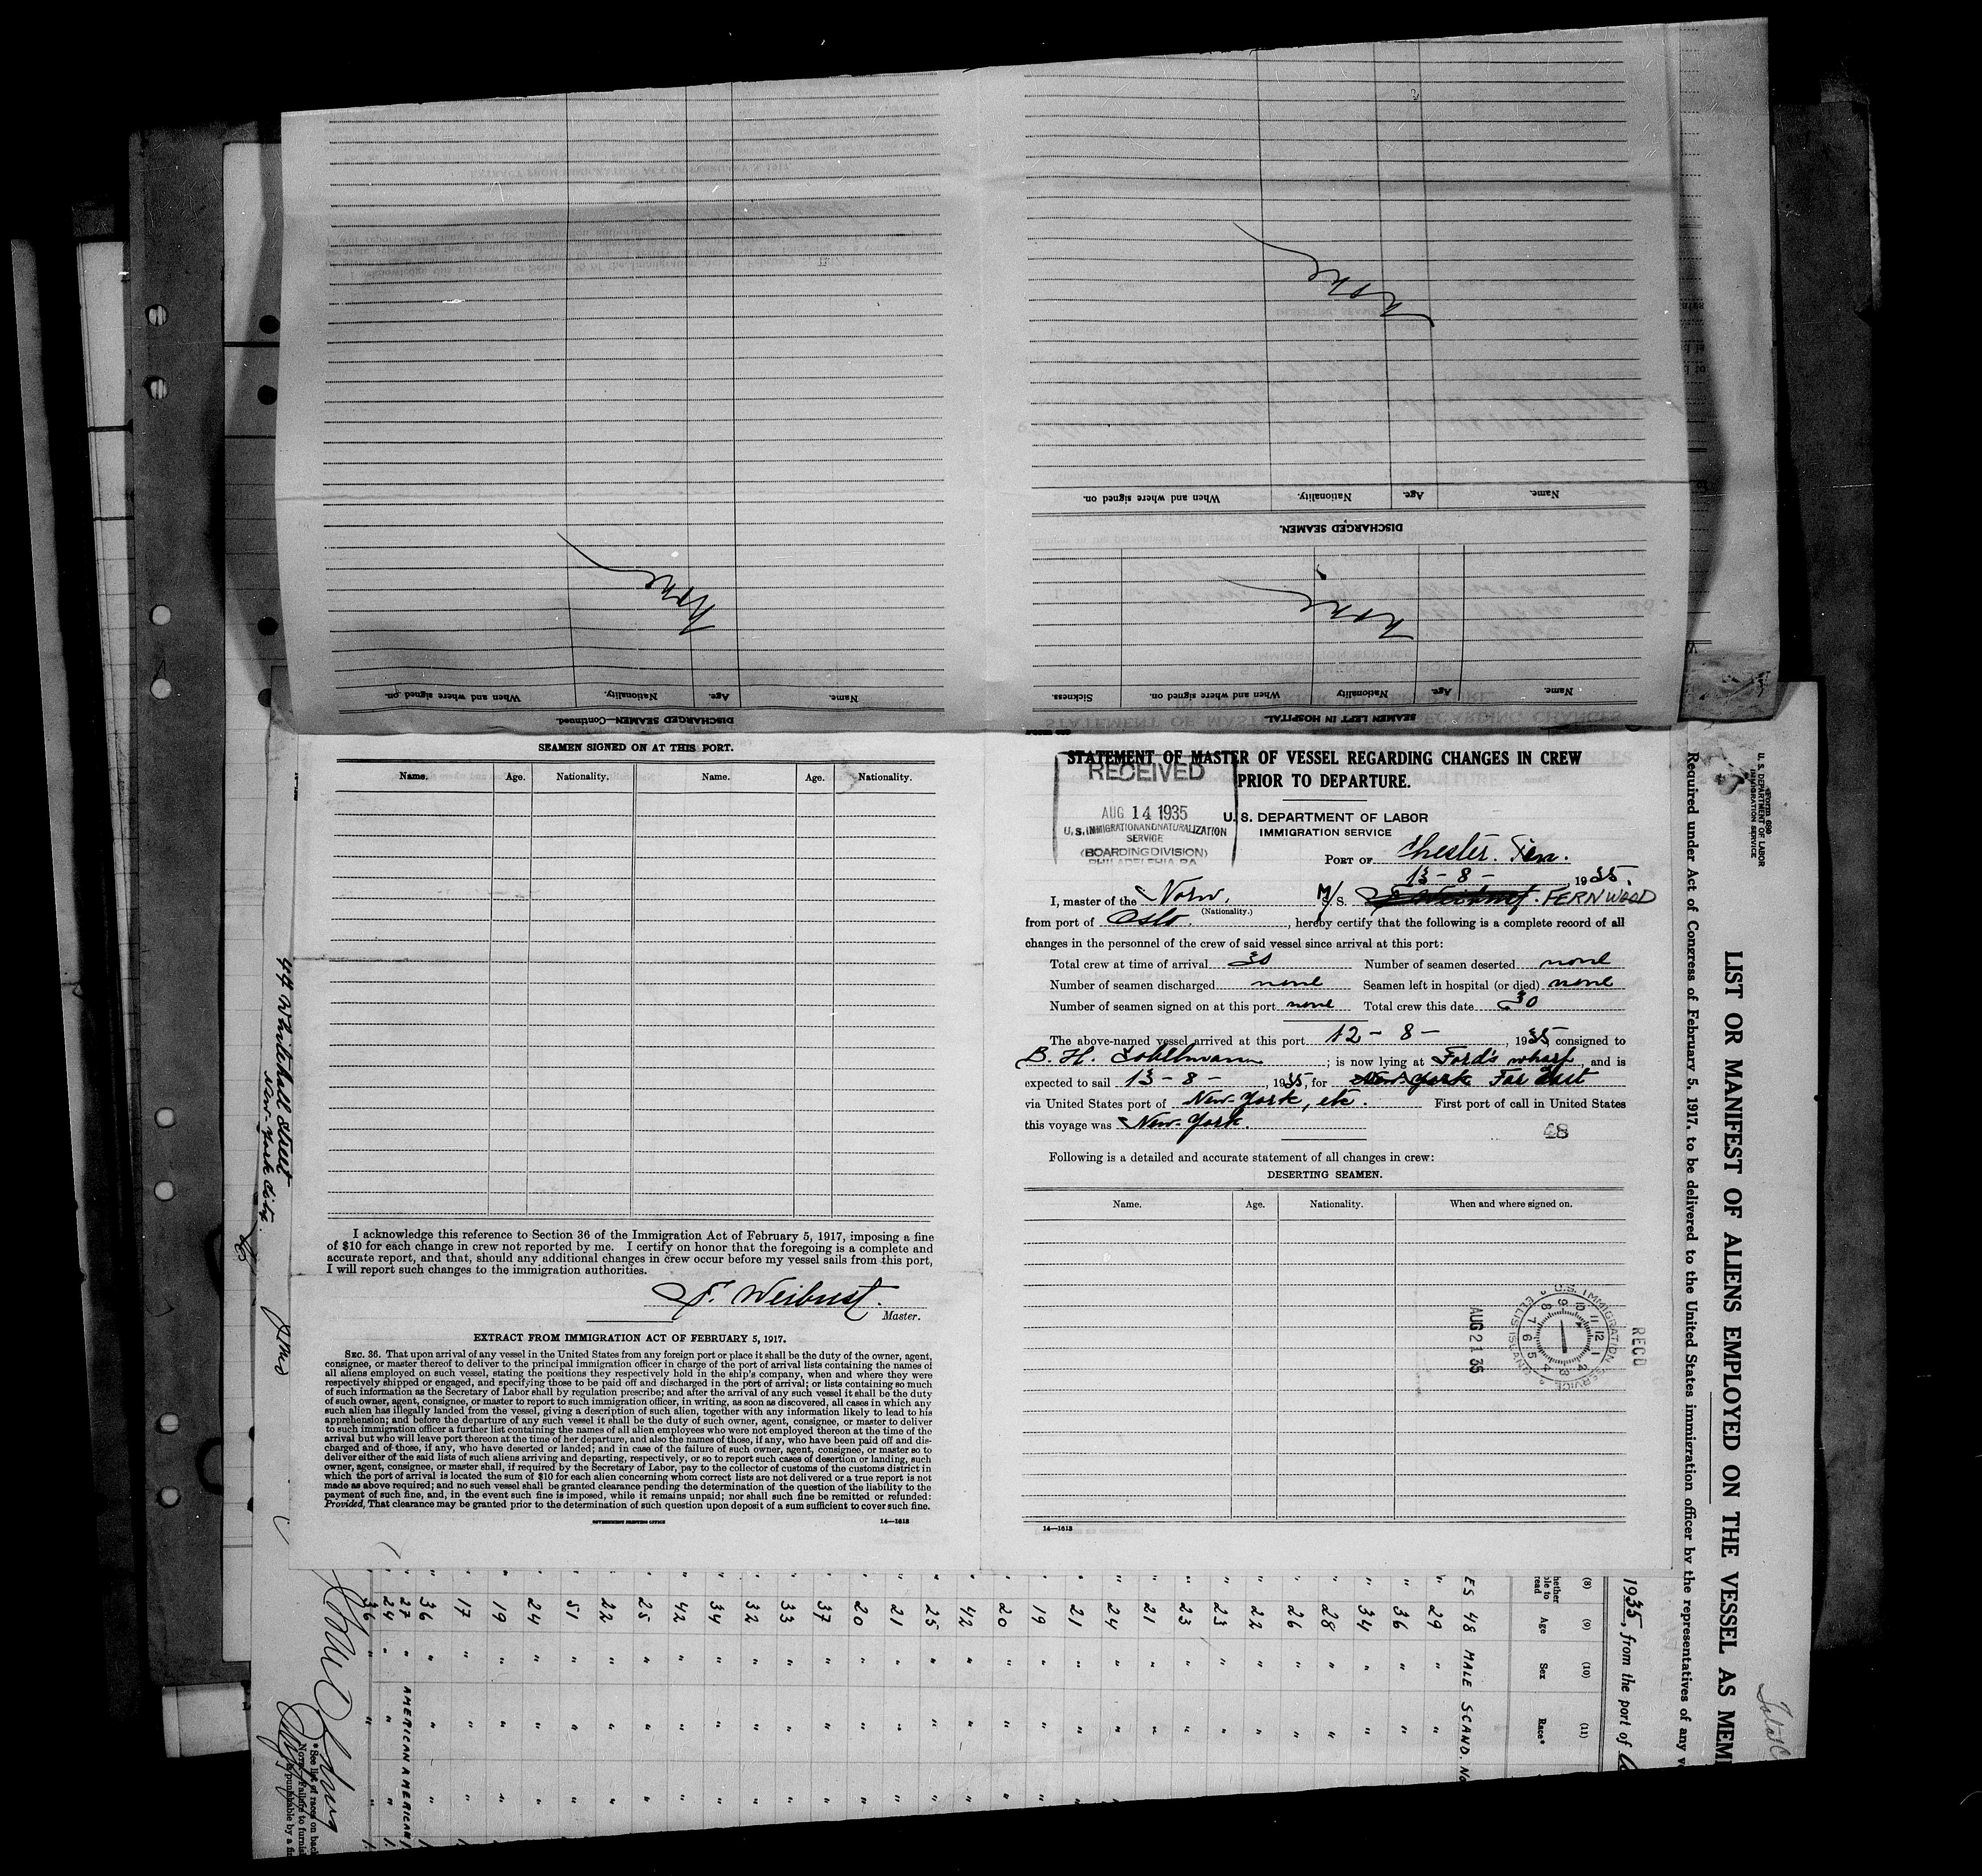 DISCHARGED SEAMEN—Continued.
Name. Age. Nationality. When and where signed on.
None
SEAMEN LEFT IN HOSPITAL
Name. Age. Nationality When and where signed on. Sickness.
None
DISCHARGED SEAMEN.
Name. Age. Nationality. When and where signed on.
None
SEAMEN SIGNED ON AT THIS PORT.
Name. Age. Nationality. Name. Age. Nationality.
I acknowledge this reference to Section 36 of the Immigration Act of February 5, 1917, imposing a fine
of $10 for each change in crew not reported by me. I certify on honor that the foregoing is a complete and
accurate report, and that, should any additional changes in crew occur before my vessel sails from this port,
I will report such changes to the immigration authorities.
F. Weibust.
Master.
EXTRACT FROM IMMIGRATION ACT OF FEBRUARY 5, 1917.
SEC. 36. That upon arrival of any vessel in the United States from any foreign port or place it shall be the duty of the owner, agent,
consignee, or master thereof to deliver to the principal immigration officer in charge of the port of arrival lists containing the names of
all aliens employed on such vessel, stating the positions they respectively hold in the ship's company, when and where they were
respectively shipped or engaged, and specifying those to be paid off and discharged in the port of arrival; or lists containing so much
of such information as the Secretary of Labor shall by regulation prescribe; and after the arrival of any such vessel it shall be the duty
of such owner, agent, consignee, or master to report to such immigration officer, in writing, as soon as discovered, all cases in which any
such alien has illegally landed from the vessel, giving a description of such alien, together with any information likely to lead to his
apprehension; and before the departure of any such vessel it shall be the duty of such owner, agent, consignee, or master to deliver
to such immigration officer a further list containing the names of all alien employees who were not employed thereon at the time of the
arrival but who will leave port thereon at the time of her departure, and also the names of those, if any, who have been paid off and dis-
charged and of those, if any, who have deserted or landed; and in case of the failure of such owner, agent, consignee, or master so to
deliver either of the said lists of such aliens arriving and departing, respectively, or so to report such cases of desertion or landing, such
owner, agent, consignee, or master shall, if required by the Secretary of Labor, pay to the collector of customs of the customs district in
which the port of arrival is located the sum of $10 for each alien concerning whom correct lists are not delivered or a true report is not
made as above required; and no such vessel shall be granted clearance pending the determination of the question of the liability to the
payment of such fine, and, in the event such fine is imposed, while it remains unpaid; nor shall such fine be remitted or refunded:
Provided, That clearance may be granted prior to the determination of such question upon deposit of a sum sufficient to cover such fine.
GOVERNMENT PRINTING OFFICE 14—1613
STATEMENT OF MASTER OF VESSEL REGARDING CHANGES IN CREW
PRIOR TO DEPARTURE.
RECEIVED
AUG 14 1935
U. S. IMMIGRATION AND NATURALIZATION
SERVICE
(BOARDING DIVISION)
PHILADELPHIA, PA.
U. S. DEPARTMENT OF LABOR
IMMIGRATION SERVICE
PORT OF Chester. Pen.
13 - 8 - , 1935.
I, master of the Norw. M/S. FERNWOOD
(Nationality.)
from port of Oslo. , hereby certify that the following is a complete record of all
changes in the personnel of the crew of said vessel since arrival at this port:
Total crew at time of arrival 30 Number of seamen deserted none
Number of seamen discharged none Seamen left in hospital (or died) none
Number of seamen signed on at this port none Total crew this date 30
The above-named vessel arrived at this port 12 - 8 - , 1935, consigned to
B. H. ; is now lying at Ford's wharf, and is
expected to sail 13 - 8 - , 1935, for New-York Far East
via United States port of New-York, etc. First port of call in United States
this voyage was New-York.
48
Following is a detailed and accurate statement of all changes in crew:
DESERTING SEAMEN.
Name. Age. Nationality. When and where signed on.
RECD
U.S. IMMIGRATION SERVICE ELLIS ISLAND
AUG 21 35
14—1613
Form 680
U. S. DEPARTMENT OF LABOR
IMMIGRATION SERVICE
LIST OR MANIFEST OF ALIENS EMPLOYED ON THE VESSEL AS MEM
Required under Act of Congress of February 5, 1917, to be delivered to the United States immigration officer by the representatives of any v
1935, from the port of
(8) (9) (10) (11)
Age Sex Race*
ES 48 MALE SCAND. No
29 " "
36 " "
34 " "
28 " "
26 " "
22 " "
23 " "
23 " "
21 " "
24 " "
21 " "
19 " "
20 " "
42 " "
25 " "
21 " "
20 " "
37 " "
33 " "
32 " "
34 " "
42 " "
25 " "
22 " "
51 " "
24 " "
19 " "
17 " "
36 " "
27 " AMERICAN AMERICAN
24 " "
36 " "
44 Whitehall Street
New-York City.
* See list of races on bac